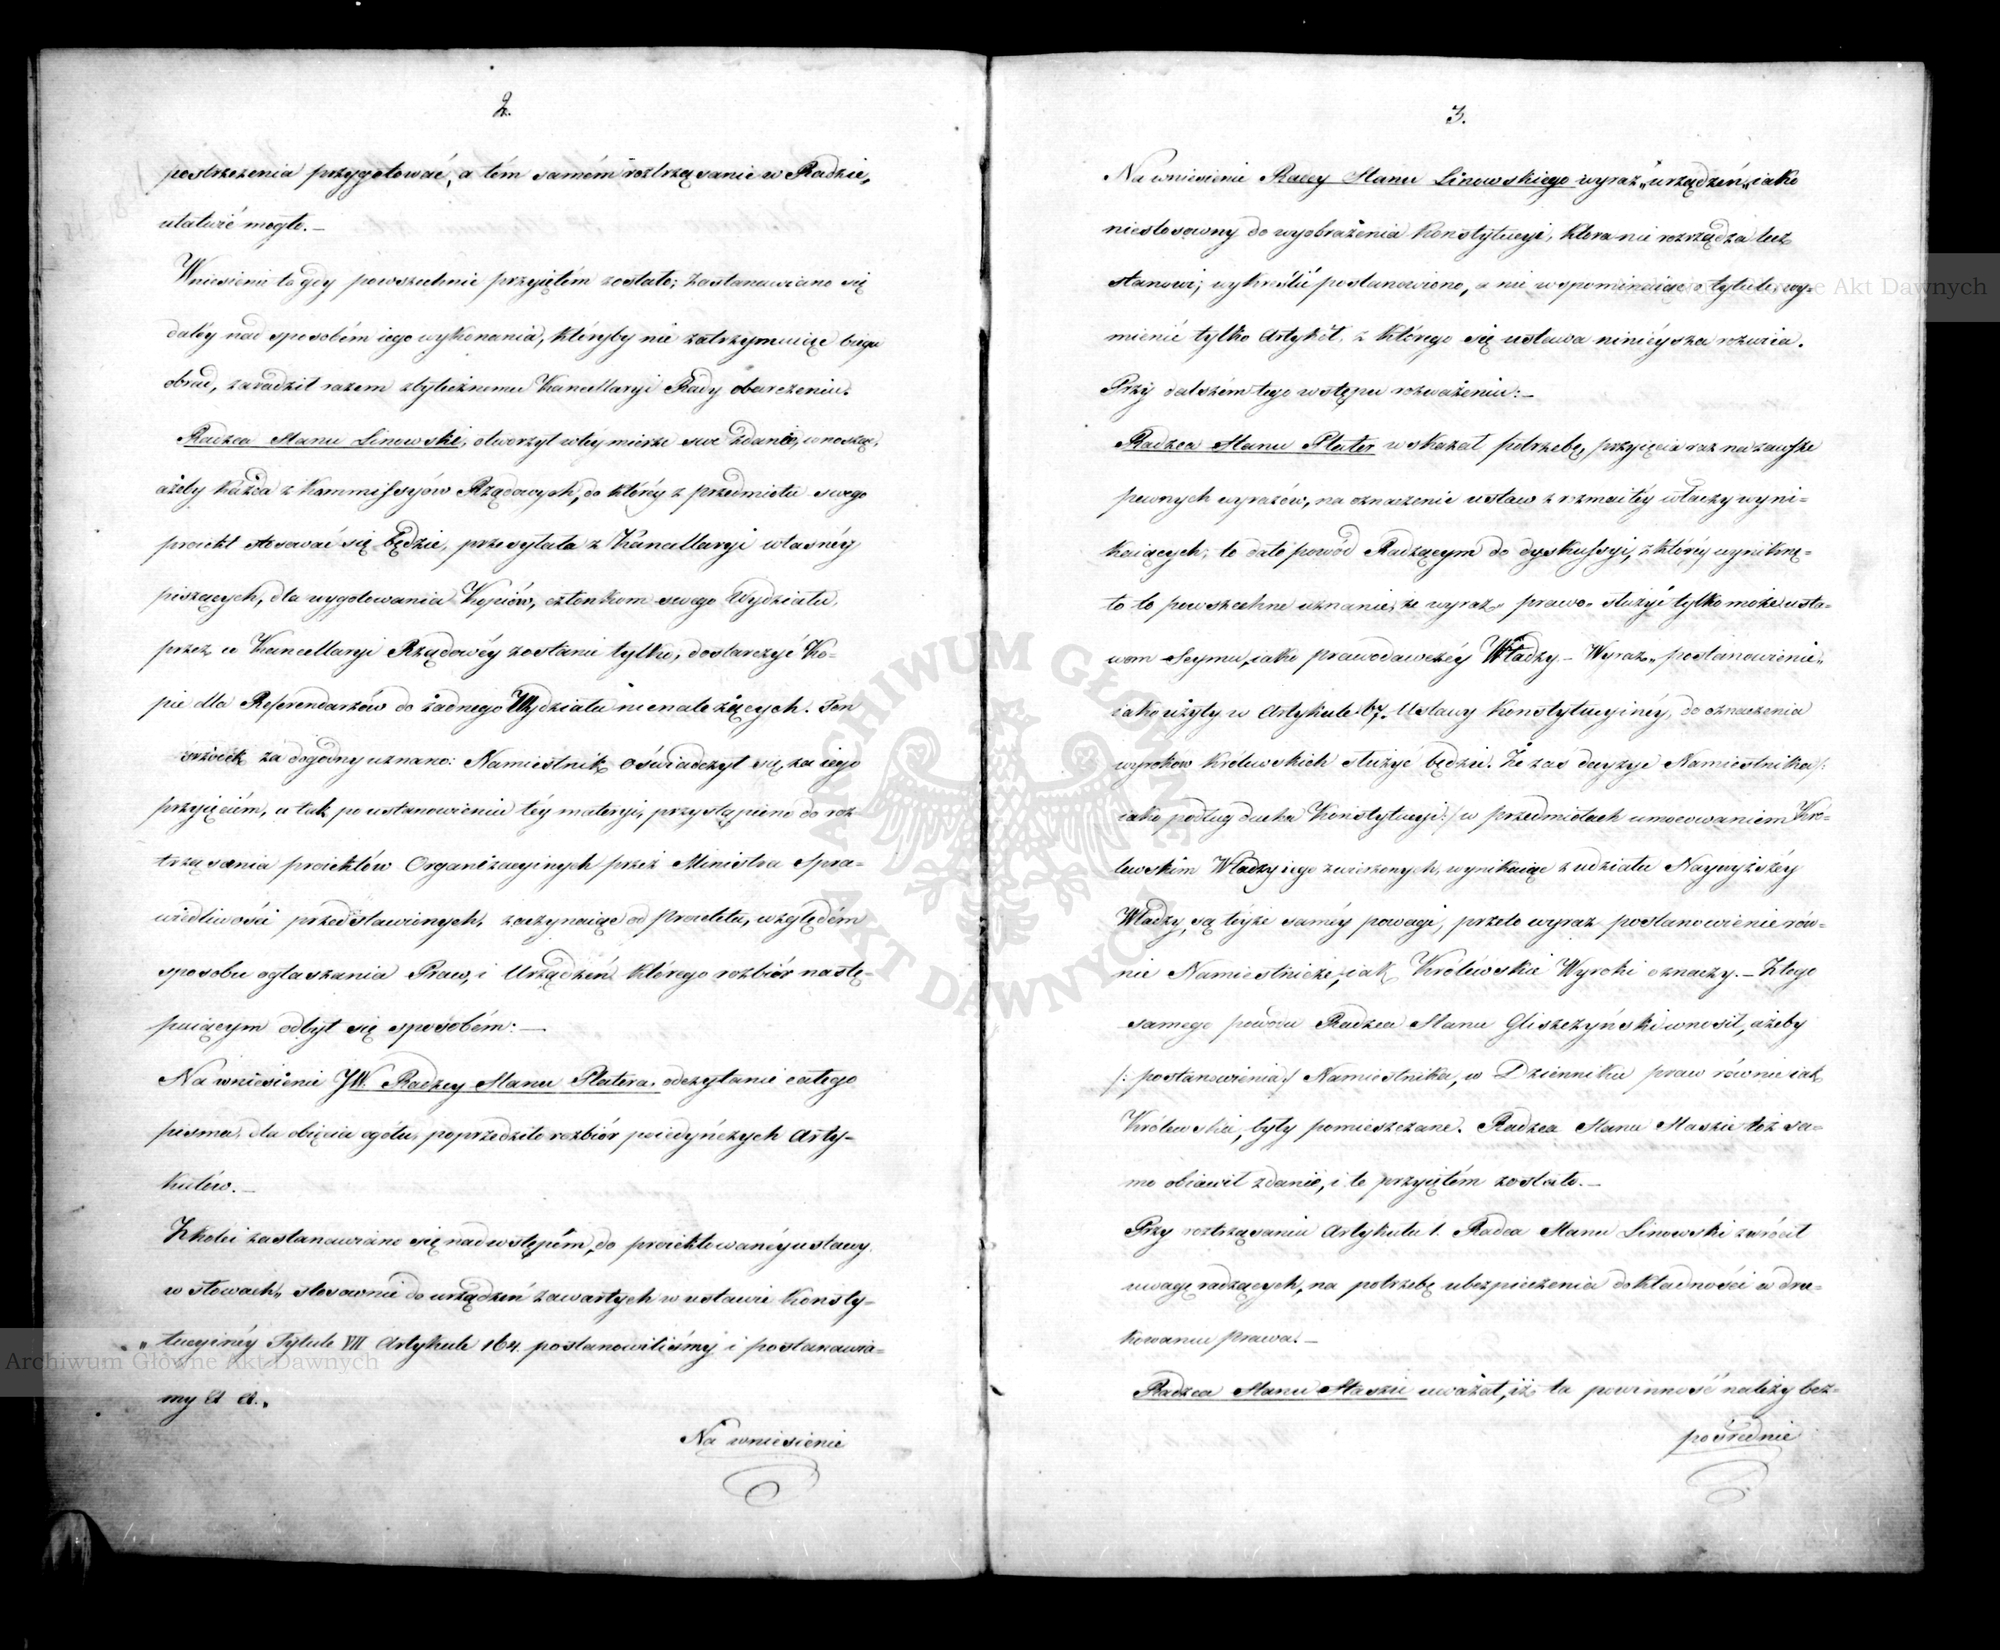 2.
postrzeżenia przygotować, a tém samém roztrząsanie w Radzie,
ułatwić mogło. —
Wniesienie to gdy powszechnie przyiętém zostało; zastanawiano się
daléy nad sposobém iego wykonania, któryby nie zatrzymuiąc biegu
obrad, zaradził razem zbytecznemu Kancellaryi Rady obarczeniu.
Radzca Stanu Linowski, otworzył w téy mierze swe zdanie, wnosząc,
ażeby każda z Kommissyów Rządowych, do któréy z przedmiotu swego
proiekt stosować się będzie, przesyłała z Kancellaryi własnéy
piszących, dla wygotowania Kopiów, członkom swego Wydziału,
przez co Kancellaryi Rządowéy zostanie tylko, dostarczyć Ko-
pie dla Referendarzów do żadnego Wydziału nienależących. Ten
srzodek za dogodny uznano: Namiestnik oświadczył się za iego
przyięciem, a tak po ustanowieniu téy materyi, przystąpiono do roz-
trząsania proiektów Organizacyinych przez Ministra Spra-
wiedliwości przedstawionych, zaczynaiąc od proiektu, względém
sposobu ogłaszania Praw, i Urządzeń którego rozbiór nastę-
puiącym odbył się sposobém: —
Na wniesienie JW. Radzcy Stanu Platera, odczytanie całego
pisma, dla obięcia ogółu, poprzedziło rozbiór poiedyńczych Arty-
kułów. —
Z kolei zastanawiano się nad wstępém, do proiektowanéy ustawy,
w słowach, stosownie do urządzeń zawartych w ustawie Konsty-
„ tucyinéy Tytule VII Artykule 164. postanowiliśmy i postanawia-
my et ct.,
Na wniesienie
3.
Na wniesienie Radcy Stanu Linowskiego wyraz „urządzeń„ iako
niestosowny do wyobrażenia Konstytucyi, która nie rozrządza lecz
stanowi; wykreślić postanowiono, a nie wspominaiąc o tytule wy-
mienić tylko Artykół, z którego się ustawa ninieysza rozwia.
Przy dalszém tego wstępu rozważeniu: —
Radzca Stanu Plater wskazał potrzebę, przyięcia raz na zawsze
pewnych wyrazów, na oznaczenie ustaw z rozmaitéy władzy wyni-
kaiących, to dało powód Radzącym do dyskussyi, z któréy wyniknę-
ło to powszechne uznanie, że wyraz „ prawo „ służyć tylko może usta-
wom Seymu, iako prawodawczéy Władzy — Wyraz „ postanowienie„
iako użyty w Artykule 67. Ustawy Konstytucyinéy, do oznaczenia
wyroków Królewskich służyć będzie. Że zaś decyzye Namiestnika /:
iako podług ducha Konstytucyi :/ w przedmiotach umocowaniem Kró-
lewskim Władzy iego zwierzonych, wynikaiąc z udziału Naywyższéy
Władzy, są téyże saméy powagi, przeto wyraz postanowienie rów-
nie Namiestnicze, iak Królewskie Wyroki oznaczy. — Z tego
samego powodu Radzca Stanu Gliszczyński wnosił, ażeby
/: postanowienia :/ Namiestnika, w Dzienniku praw równie iak
Królewskie, były pomieszczane. Radzca Stanu Staszic też sa-
mo obiawił zdanie, i to przyiętém zostało. —
Przy roztrząsaniu Artykułu 1. Radca Stanu Linowski zwrócił
uwagę radzących, na potrzebę ubezpieczenia dokładności w dru-
kowaniu prawa. —
Radzca Stanu Staszic uważał, iż ta powinność należy bez-
pośrednie
ARCHIWUM GŁÓWNE AKT DAWNYCH
Archiwum Główne Akt Dawnych
Archiwum Główne Akt Dawnych